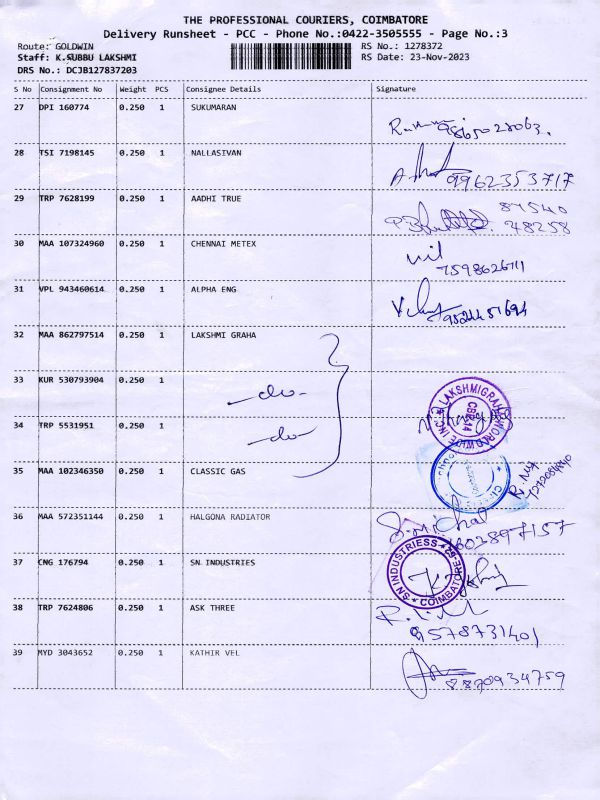 THE PROFESSIONAL COURIERS, COIMBATORE
Delivery Runsheet - PCC - Phone No.:0422-3505555 - Page No.:3
Route: GOLDWIN RS No.: 1278372
Staff: K.SUBBU LAKSHMI RS Date: 23-Nov-2023
DRS No.: DCJB127837203
S No Consignment No Weight PCS Consignee Details Signature
27 DPI 160774 0.250 1 SUKUMARAN
28 TSI 7198145 0.250 1 NALLASIVAN
9962353717
29 TRP 7628199 0.250 1 AADHI TRUE 87540
48258
30 MAA 107324960 0.250 1 CHENNAI METEX
31 VPL 943460614 0.250 1 ALPHA ENG
32 MAA 862797514 0.250 1 LAKSHMI GRAHA
33 KUR 530793904 0.250 1 -do-
34 TRP 5531951 0.250 1 -do-
LAKSHMIGRAHA WORLD WIDE INC
CBE-14
35 MAA 102346350 0.250 1 CLASSIC GAS
36 MAA 572351144 0.250 1 HALGONA RADIATOR
37 CNG 176794 0.250 1 SN INDUSTRIES
SN INDUSTRIESS ★ COIMBATORE-62 ★
38 TRP 7624806 0.250 1 ASK THREE
9578731401
39 MYD 3043652 0.250 1 KATHIR VEL
8870934759